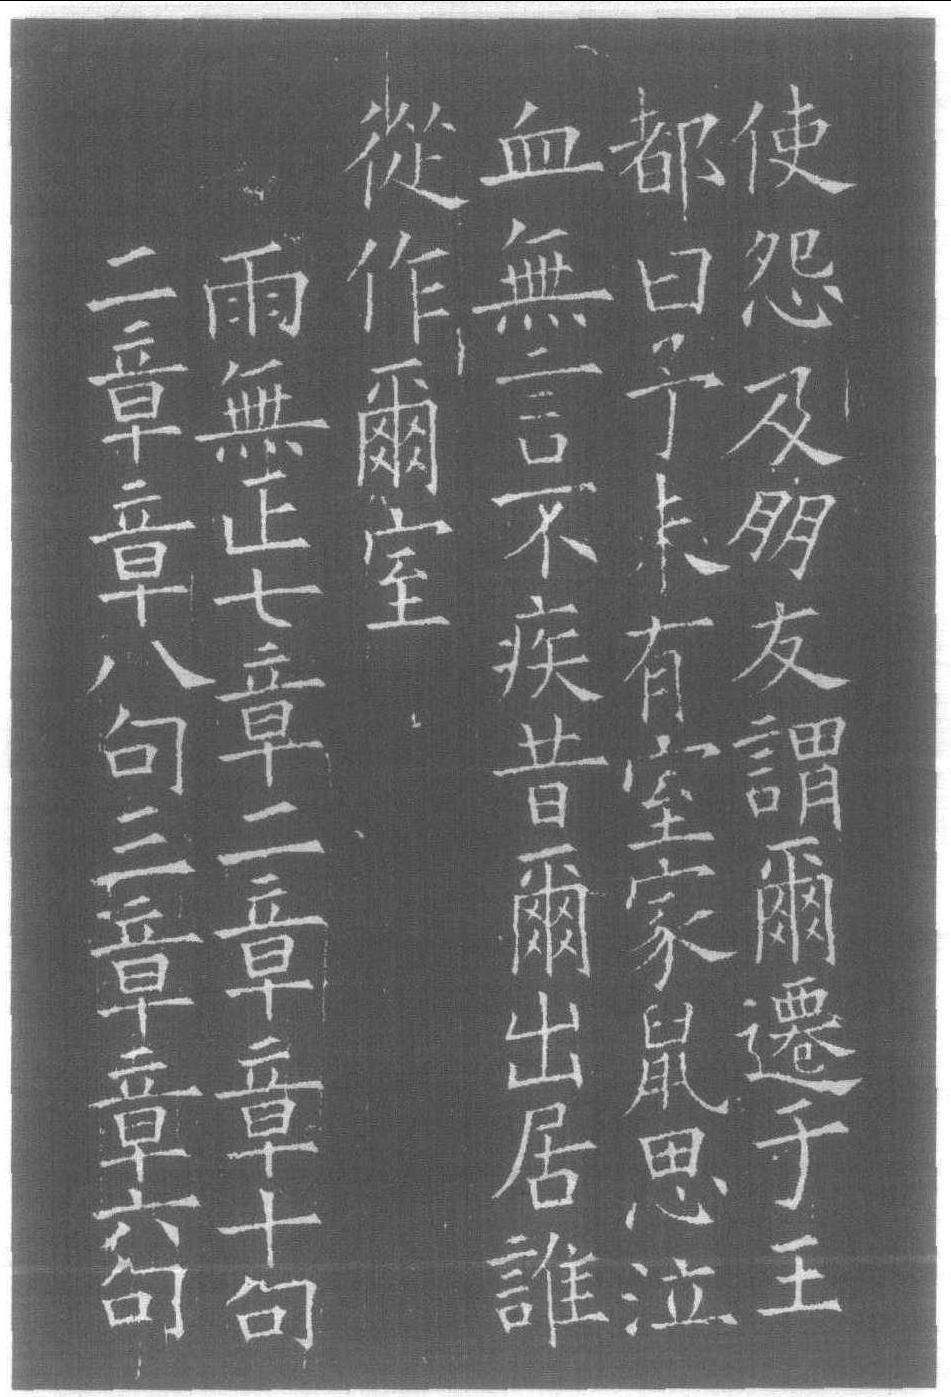 使怨及朋友謂爾遷于王
都曰予未有室家鼠思泣
血無言不疾昔爾出居誰
從作爾室
雨無正七章二章章十句
二章章八句三章章六句